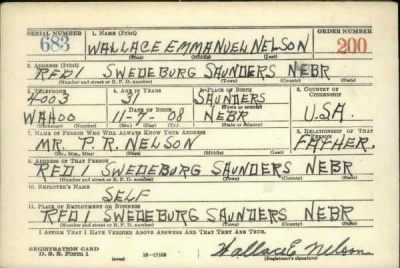 SERIAL NUMBER 1. NAME (Print) ORDER NUMBER
683 WALLACE EMMANUEL NELSON 200
(First) (Middle) (Last)
2. ADDRESS (Print)
RFD 1 SWEDEBURG SAUNDERS NEBR
(Number and street or R. F. D. number) (Town) (County) (State)
3. TELEPHONE 4. AGE IN YEARS 5. PLACE OF BIRTH 6. COUNTRY OF CITIZENSHIP
4003 31 SAUNDERS
(Town or county)
DATE OF BIRTH
WAHOO 11-7-08 NEBR U.S.A.
(Exchange) (Number) (Mo.) (Day) (Yr.) (State or country)
7. NAME OF PERSON WHO WILL ALWAYS KNOW YOUR ADDRESS 8. RELATIONSHIP OF THAT PERSON
MR. P. R. NELSON FATHER.
(Mr., Mrs., Miss) (First) (Middle) (Last)
9. ADDRESS OF THAT PERSON
RFD 1 SWEDEBURG SAUNDERS NEBR
(Number and street or R. F. D. number) (Town) (County) (State)
10. EMPLOYER'S NAME
SELF
11. PLACE OF EMPLOYMENT OR BUSINESS
RFD 1 SWEDEBURG SAUNDERS NEBR
(Number and street or R. F. D. number) (Town) (County) (State)
I AFFIRM THAT I HAVE VERIFIED ABOVE ANSWERS AND THAT THEY ARE TRUE.
REGISTRATION CARD
D. S. S. FORM 1 (over) Wallace E. Nelson
(Registrant's signature)